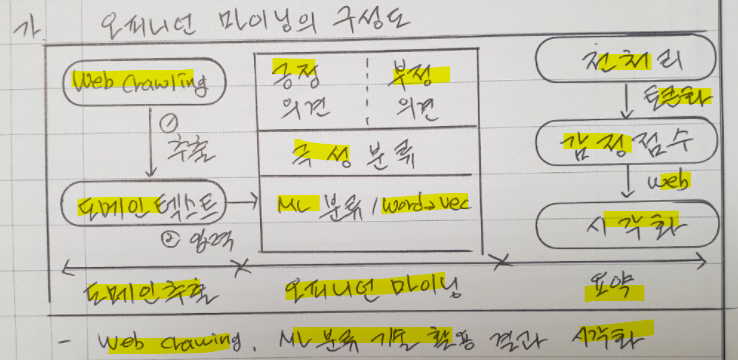 가. 오피니언 마이닝의 구성도
Web Crawling
①
추출
도메인 텍스트
② 입력
긍정 의견
부정 의견
극성 분류
ML 분류 / word2vec
전처리
토큰화
감정점수
web
시각화
도메인추출
오피니언 마이닝
요약
- Web Crawing, ML 분류 기술 활용 결과 시각화